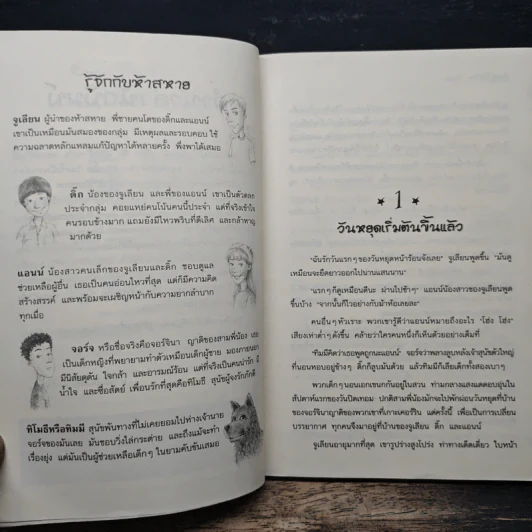 รู้จักกับห้าสหาย
จูเลียน ผู้นำของห้าสหาย พี่ชายคนโตของดิ๊กและแอนน์
เขาเป็นเหมือนมันสมองของกลุ่ม มีเหตุผลและรอบคอบ ใช้
ความฉลาดหลักแหลมแก้ปัญหาได้หลายครั้ง พึ่งพาได้เสมอ
ดิ๊ก น้องของจูเลียน และพี่ของแอนน์ เขาเป็นตัวตลก
ประจำกลุ่ม คอยแหย่คนโน้นคนนี้ประจำ แต่ที่จริงเข้าใจ
คนรอบข้างมาก แถมยังมีไหวพริบที่ดีเลิศ และกล้าหาญ
มากด้วย
แอนน์ น้องสาวคนเล็กของจูเลียนและดิ๊ก ชอบดูแล
ช่วยเหลือผู้อื่น เธอเป็นคนอ่อนไหวที่สุด แต่ก็มีความคิด
สร้างสรรค์ และพร้อมจะเผชิญหน้ากับความยากลำบาก
ทุกเมื่อ
จอร์จ หรือชื่อจริงคือจอร์จินา ญาติของสามพี่น้อง เธอ
เป็นเด็กหญิงที่พยายามทำตัวเหมือนเด็กผู้ชาย มองภายนอก
มีนิสัยดุดัน ใจกล้า และอารมณ์ร้อน แต่ที่จริงเป็นคนน่ารัก มี
น้ำใจ และซื่อสัตย์ เพื่อนรักที่สุดคือทิมมี สุนัขผู้จงรักภักดี
ทิโมธีหรือทิมมี สุนัขพันทางที่ไม่เคยยอมไปห่างเจ้านาย
จอร์จของมันเลย มันชอบวิ่งไล่กระต่าย และถึงแม้จะทำ
เรื่องยุ่ง แต่มันก็เป็นผู้ช่วยเหลือเด็กๆ ในยามคับขันเสมอ
1
วันหยุดเริ่มต้นขึ้นแล้ว
"ฉันรักวันแรกๆ ของวันหยุดหน้าร้อนจังเลย" จูเลียนพูดขึ้น "มันดู
เหมือนจะยืดยาวออกไปนานแสนนาน"
"แรกๆ ก็ดูเหมือนดีนะ ผ่านไปช้าๆ" แอนน์น้องสาวของจูเลียนพูด
ขึ้นบ้าง "จากนั้นก็ไวอย่างกับม้าห้อเลยละ"
คนอื่นๆ หัวเราะ พวกเขารู้ดีว่าแอนน์หมายถึงอะไร "โฮ่ง โฮ่ง"
เสียงเห่าต่ำๆ ดังขึ้น คล้ายว่าใครคนหนึ่งก็เห็นด้วยอย่างเต็มที่
"ทิมมีคิดว่าเธอพูดถูกนะแอนน์" จอร์จว่าพลางลูบหลังเจ้าสุนัขตัวใหญ่
ที่นอนหอบอยู่ข้างๆ ดิ๊กก็ลูบมันด้วย แล้วทิมมีก็เลียเด็กทั้งสองเบาๆ
พวกเด็กๆ นอนเอกเขนกกันอยู่ในสวน ท่ามกลางแสงแดดอบอุ่นใน
สัปดาห์แรกของวันปิดเทอม ปกติสามพี่น้องมักจะไปพักผ่อนวันหยุดที่บ้าน
ของจอร์จินาญาติของพวกเขาที่เกาะเคอร์ริน แต่ครั้งนี้ เพื่อเป็นการเปลี่ยน
บรรยากาศ ทุกคนจึงมาอยู่ที่บ้านของจูเลียน ดิ๊ก และแอนน์
จูเลียนอายุมากที่สุด เขารูปร่างสูงโปร่ง ท่าทางเด็ดเดี่ยว ใบหน้า